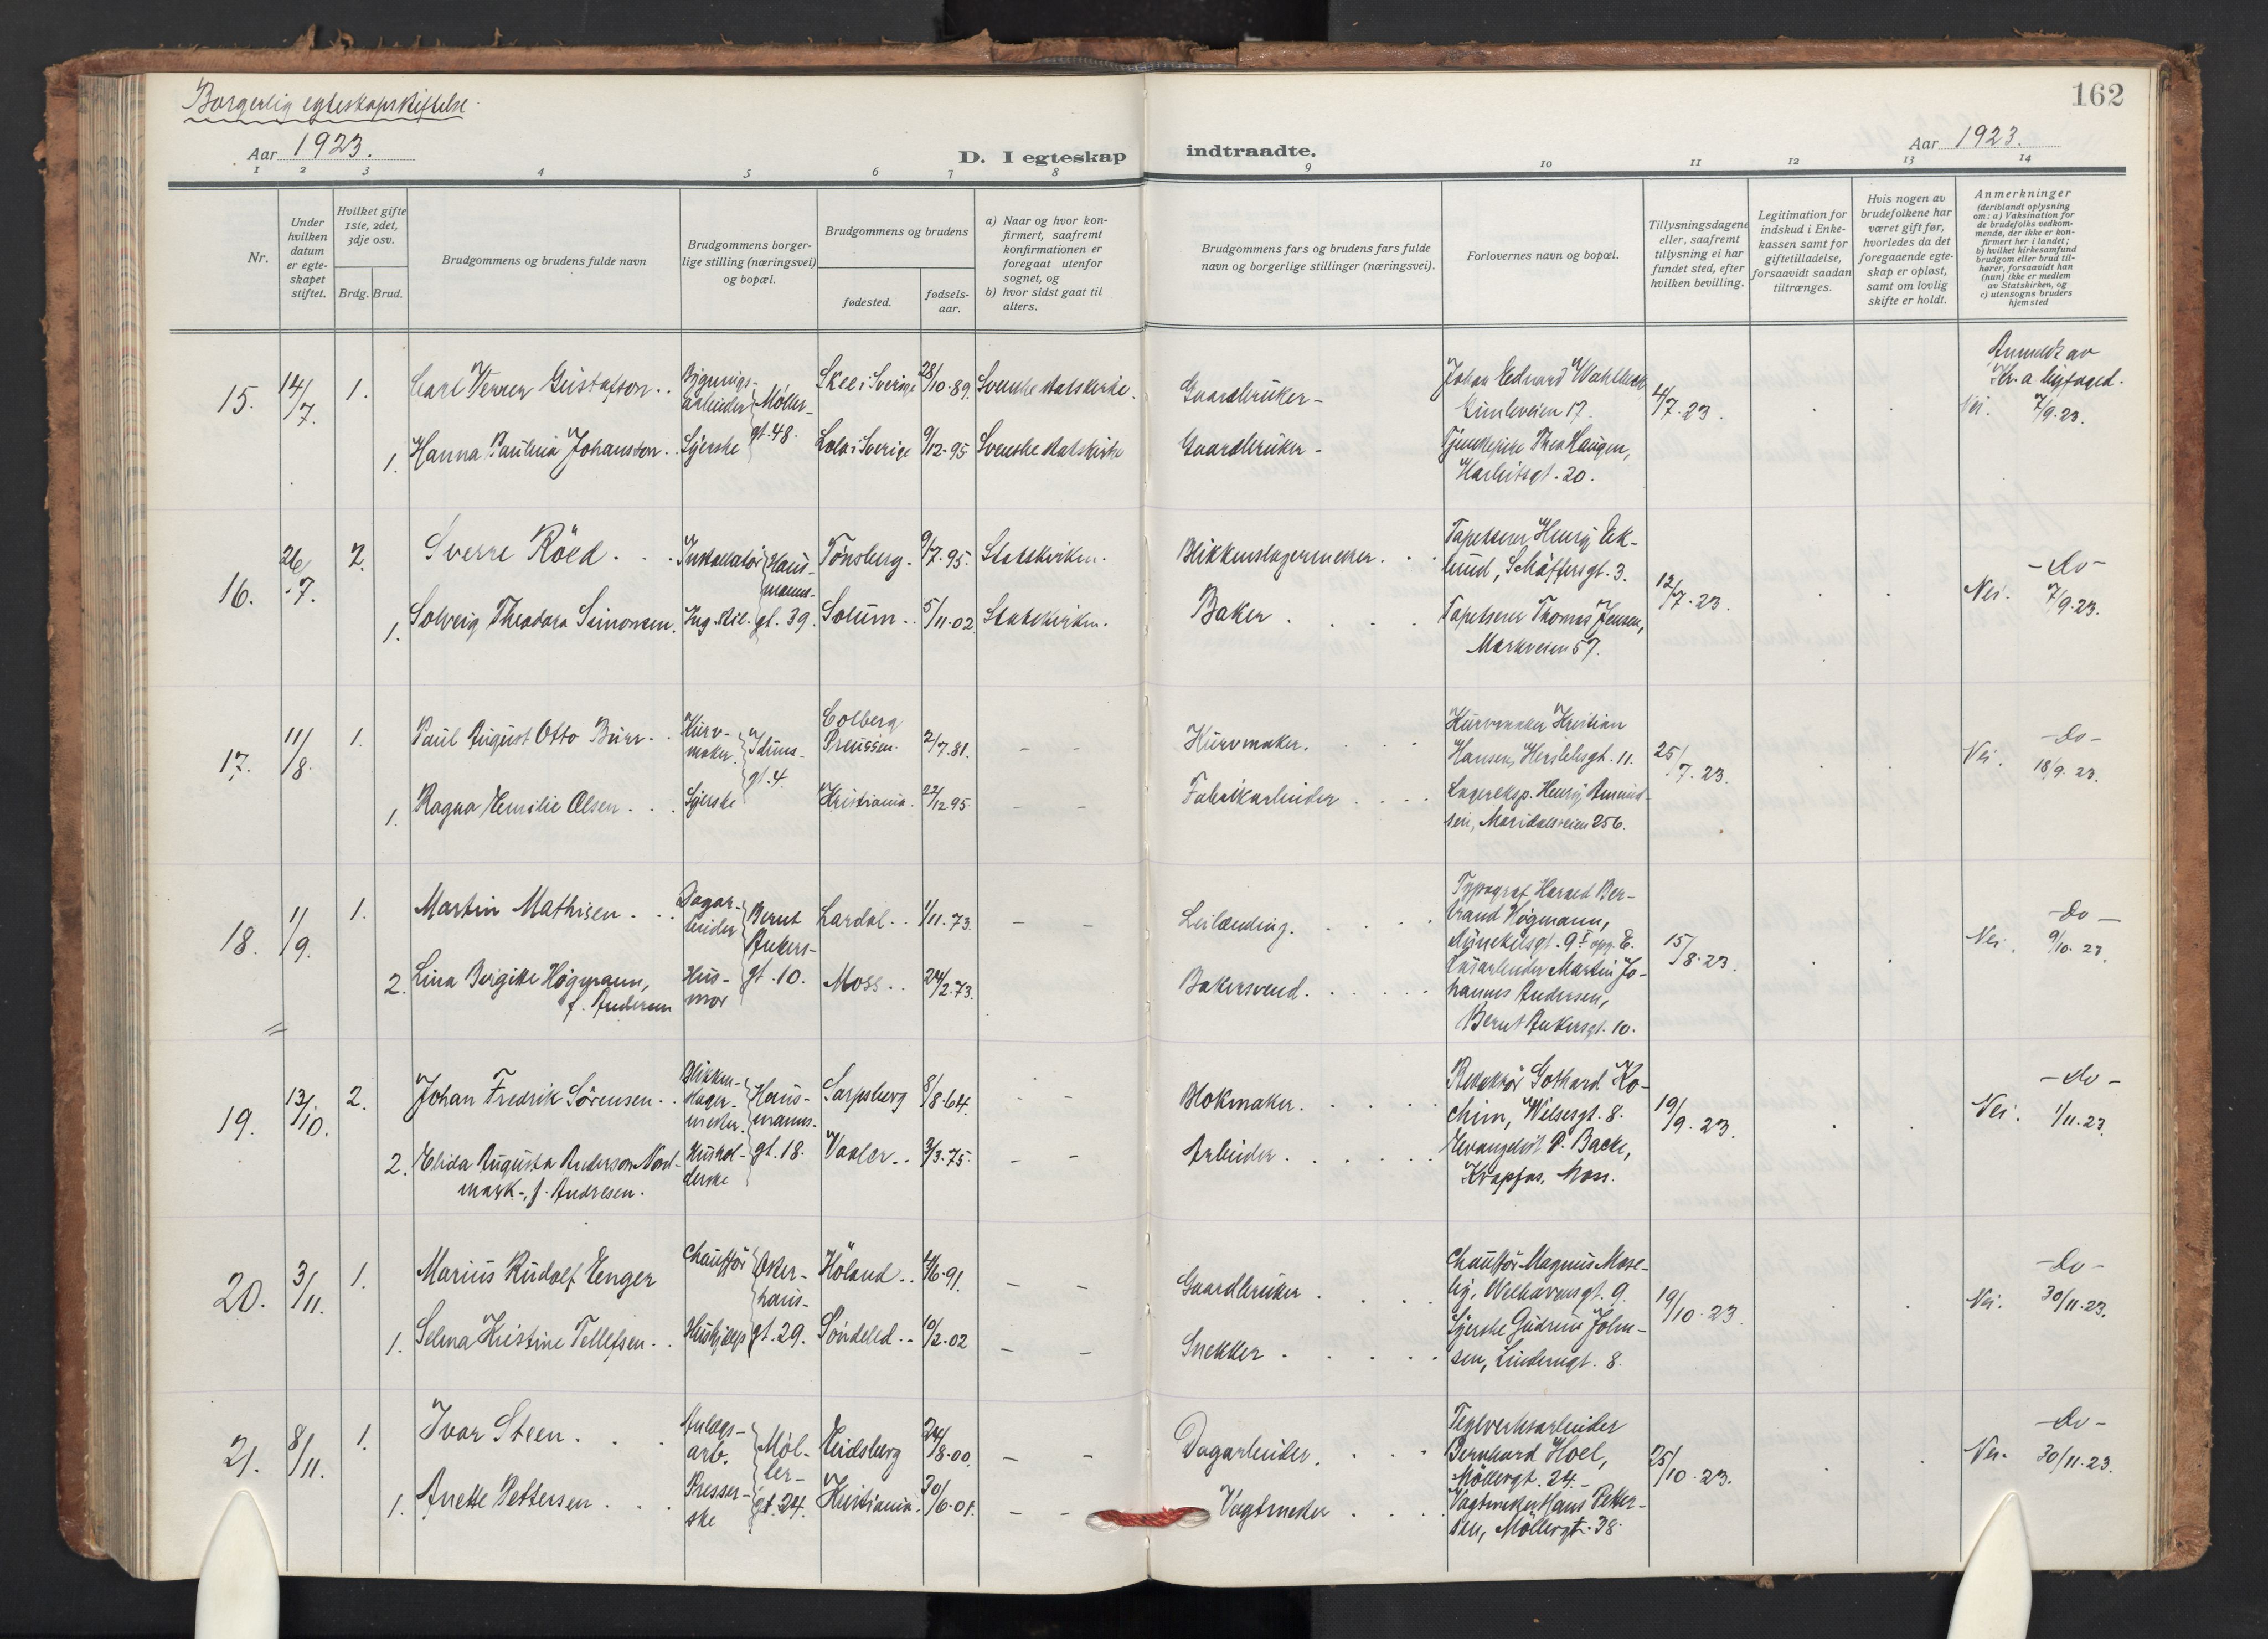 Borgerlig egteskapsstiftelse.
162
Aar 1923.
D. I egteskap indtraadte.
Aar 1923.
1 2 3 4 5 6 7 8 9 10 11 12 13 14
Nr.
Under hvilken datum er egteskapet stiftet.
Hvilket gifte 1ste, 2det, 3dje osv.
Brdg. Brud.
Brudgommens og brudens fulde navn
Brudgommens borgerlige stilling (næringsvei) og bopæl.
Brudgommens og brudens
fødested.
fødselsaar.
a) Naar og hvor konfirmert, saafremt konfirmationen er foregaat utenfor sognet, og
b) hvor sidst gaat til alters.
Brudgommens fars og brudens fars fulde navn og borgerlige stillinger (næringsvei).
Forlovernes navn og bopæl.
Tillysningsdagene eller, saafremt tillysning ei har fundet sted, efter hvilken bevilling.
Legitimation for indskud i Enkekassen samt for giftetilladelse, forsaavidt saadan tiltrænges.
Hvis nogen av brudefolkene har været gift før, hvorledes da det foregaaende egteskap er opløst, samt om lovlig skifte er holdt.
Anmerkninger
(deriblandt oplysning om: a) Vaksination for de brudefolks vedkommende, der ikke er konfirmert her i landet;
b) hvilket kirkesamfund brudgom eller brud tilhører, forsaavidt han (hun) ikke er medlem av Statskirken, og
c) utensogns bruders hjemsted
15. 14/7. 1. Carl Verner Gustafson. Bygningsarbeider Møllergt. 48. Skee i Sverige 28/10.89. Svenske statskirke. Gaardbruker - Johan Edvard Wahlbeck 17. 4/7.23. Nei. Anmeldt av Kr.a byfoged. 7/9.23.
1. Hanna Paulina Johanson. Syerske Sverige 9/12.95 Svenske statskirke Gaardbruker - Tjenestepike Thea Haugen, Harbitzgt. 20.
16. 26/7. 2. Sverre Röed. Installatör Hausmannsgt. 39. Tönsberg. 9/7.95. Statskirken. Blikkenslagermester. Tapetserer Henry Eklund, Schäffersgt. 3. 12/7.23. Nei. -do- 7/9.23.
1. Solveig Theodora Simonsen. Solum. 5/11.02 Statskirken. Baker. Tapetserer Thomas Jensen, Markveien 57.
17. 11/8. 1. Paul August Otto Burr. Kurvmaker. Idunsgt. 4. Colberg Preussen. 2/7.81. - - Kurvmaker. Kurvmaker Kristian Hansen, Herslebsgt. 11. 25/7.23. Nei. -do- 18/9.23.
1. Ragna Emilie Olsen. Syerske Kristiania. 22/12 95 - - Fabrikarbeider. Lagereksp. Henry Amundsen, Maridalsveien 256.
18. 1/9. 1. Martin Mathisen. Dagarbeider Bernt Ankersgt. 10. Lardal. 1/11.73. - - Leilænding. Typograf Harald Bertrand Högmann, Münckelsgt. 9 I opg. E. 15/8.23. Nei. -do- 9/10.23.
2. Lina Birgitte Högmann, f. Andersen Husmor Moss. 24/2.73. Bakersvend. Løsarbeider Martin Johannes Andersen, Bernt Ankersgt. 10.
19. 13/10. 2. Johan Fredrik Sörensen. Blikkenslagermester. Hausmannsgt. 18. Sarpsborg 8/8.64. - - Blokmaker. Redaktör Gothard Kochim, Wilsesgt. 8. 19/9.23. Nei. -do- 1/11.23.
2. Elida Augusta Anderson Nordmark, f. Andresen. Husholderske Vaaler. 3/3.75. - - Arbeider. Evangelist P. Backe, Krapfos, Moss.
20. 3/11. 1. Marius Rudolf Enger Chaufför Akershusgt. 29. Höland. /6.91. - - Gaardbruker. Chauffør Magnus Moseby, Welhavensgt. 9. 19/10.23. Nei. -do- 30/11.23.
1. Selma Kristine Tellefsen. Hushjælp Söndeled. 10/2.02 - - Snekker. Syerske Gudrun Johnsen, Linderngt. 8.
21. 8/11. 1. Ivar Steen. Anlægsarb. Möllergt. 24. Eidsberg 24/8.00. - - Dagarbeider. Teglverksarbeider Bernhard Hoel, Möllergt. 24. - 25/10.23. Nei. -do- 30/11.23.
1. Anette Pettersen. Presserske Kristiania. 30/6.01. - - Vagtmester Vagtmester Hans Pettersen, Möllergt. 38.